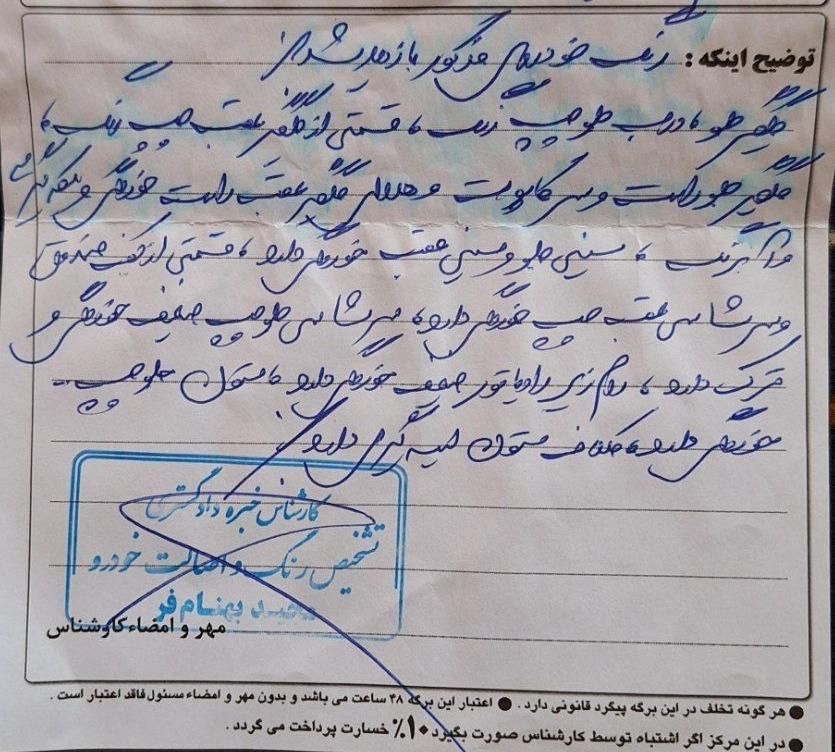 توضیح اینکه : رنگ خودروی مذکور بازدید شد.
گلگیر جلو، درب جلو چپ رنگ، قسمتی از گلگیر عقب چپ رنگ،
گلگیر جلو راست و سر کاپوت و هلالی گلگیر عقب راست خوردگی و لکه گیری
و آبرنگ، سینی جلو و سینی عقب خوردگی دارد، قسمتی از کف صندوق
و سرشاسی عقب چپ خوردگی دارد، سرشاسی جلو چپ ضعیف خوردگی و
ترک دارد، رام زیر رادیاتور ضعیف خوردگی دارد، ستون جلو چپ
خوردگی دارد، ستون لبه گیری دارد.
کارشناس خبره دادگستری
تشخیص رنگ و اصالت خودرو
مجید بهنام فر
مهر و امضاء کارشناس
● هر گونه تخلف در این برگه پیگرد قانونی دارد . ● اعتبار این برگه ۴۸ ساعت می باشد و بدون مهر و امضاء مسئول فاقد اعتبار است .
● در این مرکز اگر اشتباه توسط کارشناس صورت بگیرد ۱۰٪ خسارت پرداخت می گردد .